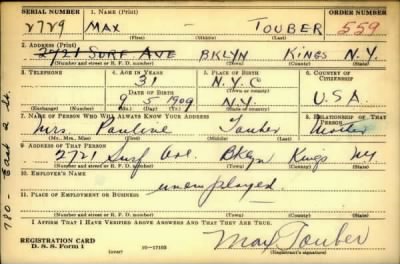 SERIAL NUMBER 1. NAME (Print) ORDER NUMBER
2729 MAX - TOUBER 559
(First) (Middle) (Last)
2. ADDRESS (Print)
2721 SURF AVE BKLYN KINGS N.Y.
(Number and street or R. F. D. number) (Town) (County) (State)
3. TELEPHONE 4. AGE IN YEARS 5. PLACE OF BIRTH 6. COUNTRY OF CITIZENSHIP
31 N.Y.C
DATE OF BIRTH (Town or county)
9 5 1909 N.Y. U.S.A.
(Exchange) (Number) (Mo.) (Day) (Yr.) (State or country)
7. NAME OF PERSON WHO WILL ALWAYS KNOW YOUR ADDRESS 8. RELATIONSHIP OF THAT PERSON
Mrs. Pauline Touber Mother
(Mr., Mrs., Miss) (First) (Middle) (Last)
9. ADDRESS OF THAT PERSON
2721 Surf Ave. Bklyn Kings NY
(Number and street or R. F. D. number) (Town) (County) (State)
10. EMPLOYER'S NAME
unemployed.
11. PLACE OF EMPLOYMENT OR BUSINESS
(Number and street or R. F. D. number) (Town) (County) (State)
I AFFIRM THAT I HAVE VERIFIED ABOVE ANSWERS AND THAT THEY ARE TRUE.
REGISTRATION CARD
D. S. S. Form 1 (over) 16-17105
Max Touber
(Registrant's signature)
780 - East 2 St.